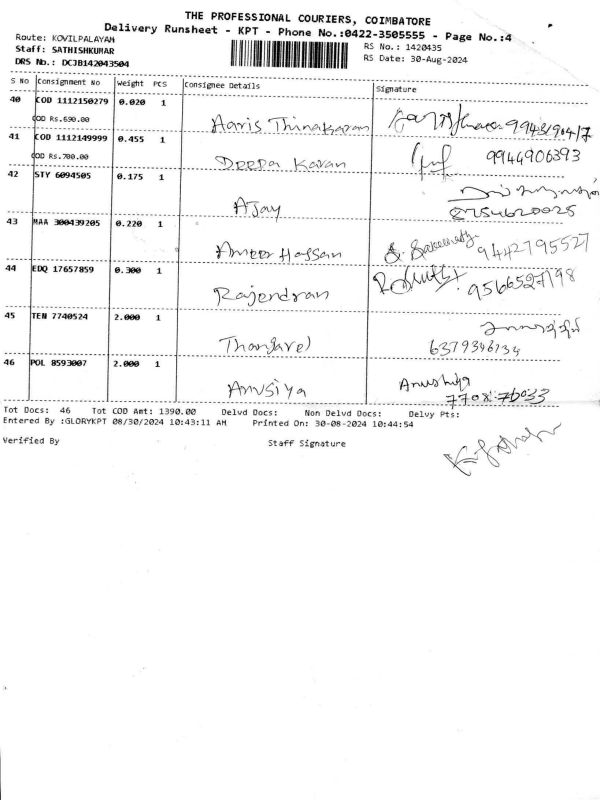 THE PROFESSIONAL COURIERS, COIMBATORE
Delivery Runsheet - KPT - Phone No.:0422-3505555 - Page No.:4
Route: KOVILPALAYAM
RS No.: 1420435
Staff: SATHISHKUMAR
RS Date: 30-Aug-2024
DRS No.: DCJB142043504
S No Consignment No Weight PCS Consignee Details Signature
40 COD 1112150279 0.020 1 Haris Thinakaran
COD Rs.690.00
41 COD 1112149999 0.455 1 Deepa Karan 9944906393
COD Rs.700.00
42 STY 6094505 0.175 1 Ajay 8754620025
43 MAA 300439205 0.220 1 Ameer Hassan 9442795527
44 EDQ 17657859 0.300 1 Rajendran 9566527198
45 TEN 7740524 2.000 1 Thangavel 6379346134
46 POL 8593007 2.000 1 Anusiya Anushiya
Tot Docs: 46 Tot COD Amt: 1390.00 Delvd Docs: Non Delvd Docs: Delvy Pts:
Entered By :GLORYKPT 08/30/2024 10:43:11 AM Printed On: 30-08-2024 10:44:54
Verified By Staff Signature